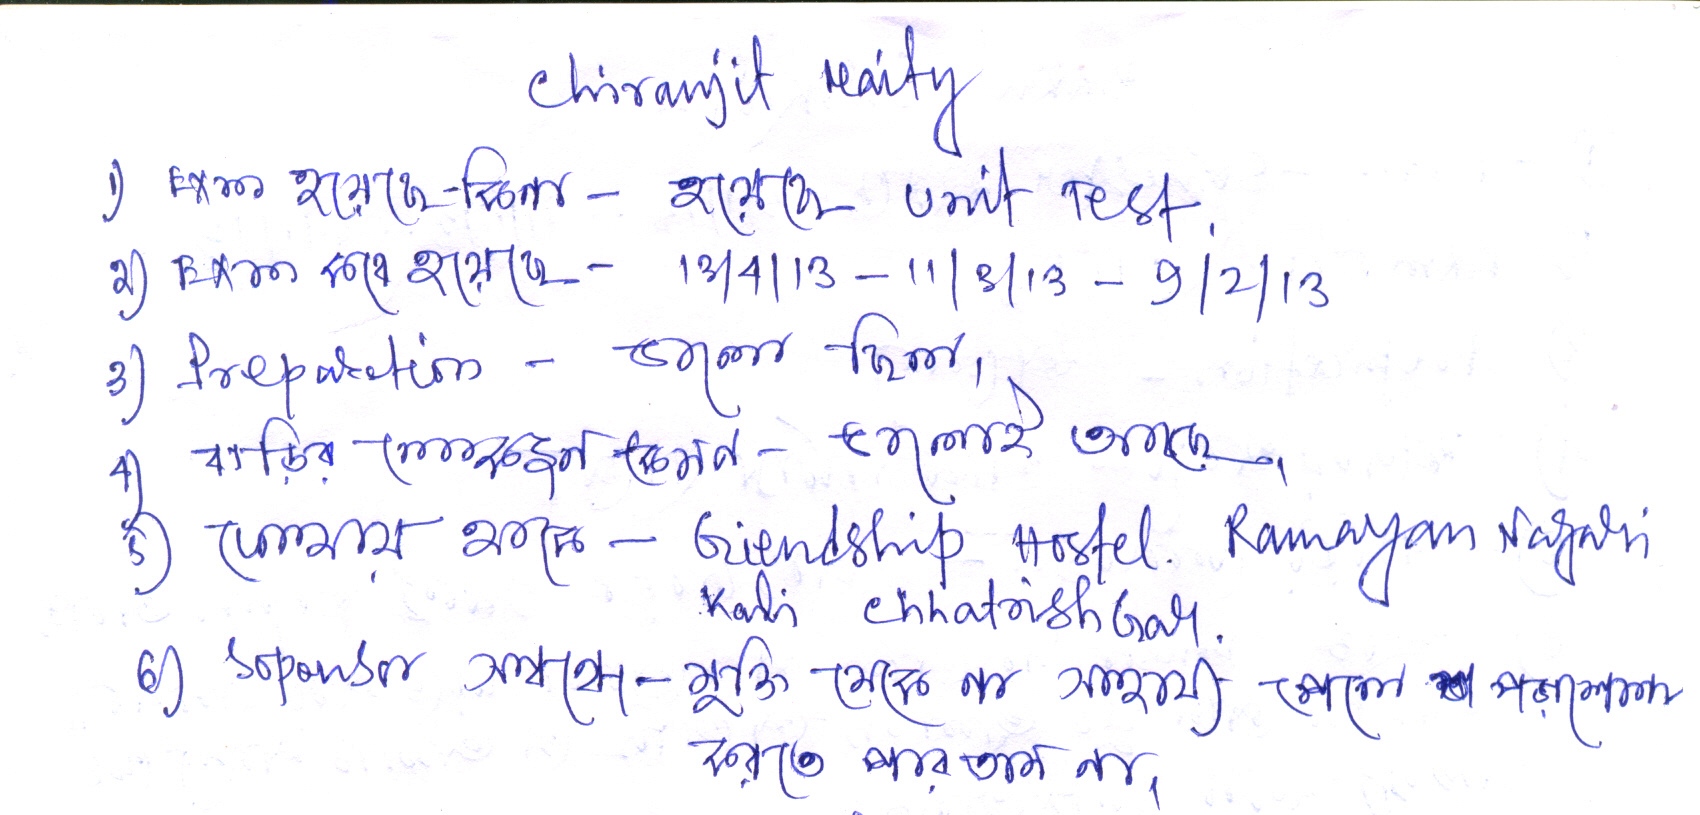 Chiranjit Maity
1) Exam হয়েছে কিনা - হয়েছে Unit Test.
২) Exam কবে হয়েছে - 13/4/13 - 11/3/13 - 9/2/13
3) Preparation - ভালো ছিল।
4) বাড়ির লোকজন কেমন - ভালোই আছে।
5) কোথায় থাকে - Friendship Hostel. Ramayan Nagari
Kabi Chhatrish Gar.
6) Soponsor সম্বন্ধে - মুক্তি থেকে না সাহায্য পেলে পড়াশোনা
করতে পারতাম না।